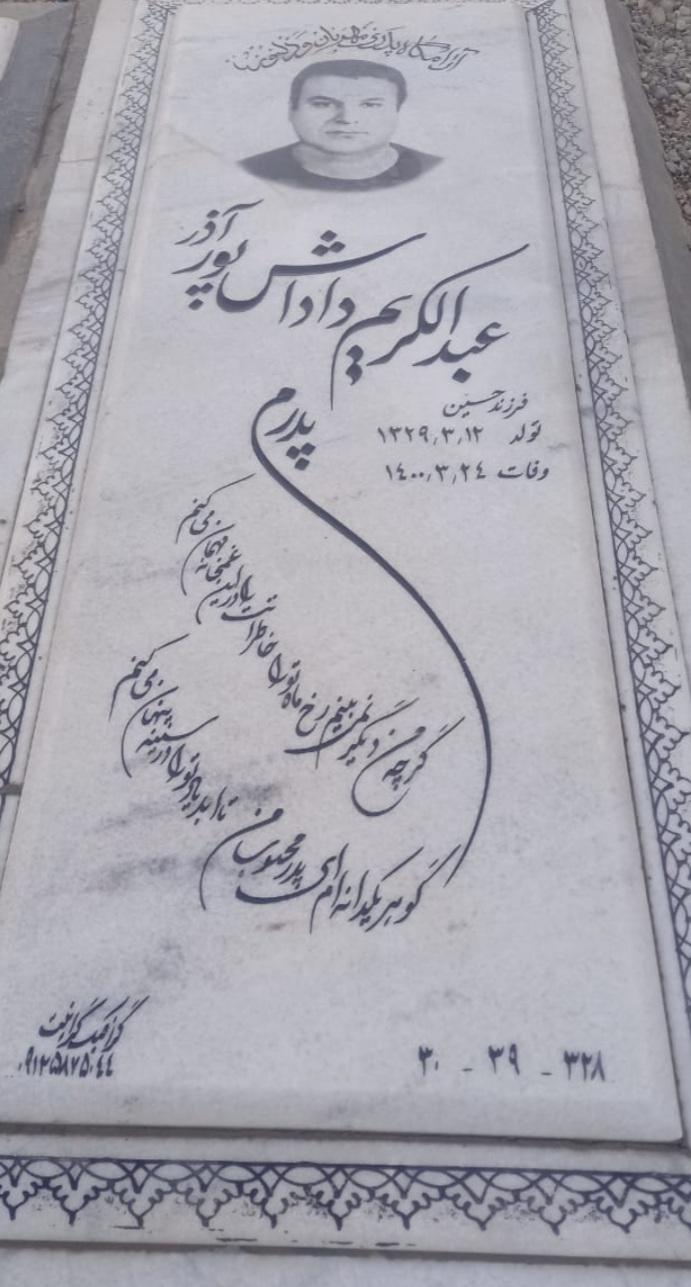 آرامگاه پدری مهربان و دلسوز
عبدالکریم داداش پور آذر
فرزند حسین
تولد ۱۳۲۹,۳,۱۲
وفات ۱۴۰۰,۳,۲۴
پدرم
گرچه من دیگر نمی بینم رخ ماه تو را
خاطراتت را در این غمخانه مهمان می کنم
گوهر یکدانه ام ای پدر محبوب من
تا ابد یاد تو را در سینه پنهان می کنم
۳۲۸ - ۳۹ - ۳۰
گرافیک گرانیت
۰۹۱۲۵۸۷۵۰۴۴